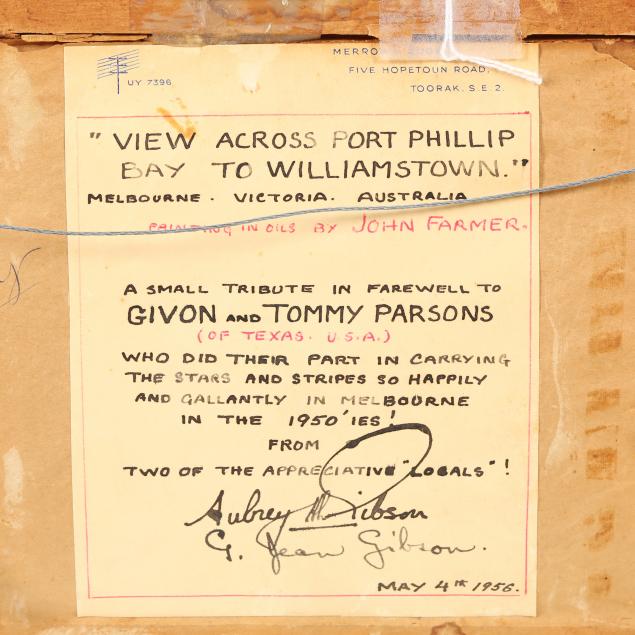 UY 7396
FIVE HOPETOUN ROAD,
TOORAK. S.E. 2.
"VIEW ACROSS PORT PHILLIP
BAY TO WILLIAMSTOWN."
MELBOURNE. VICTORIA. AUSTRALIA
PAINTING IN OILS BY JOHN FARMER.
A SMALL TRIBUTE IN FAREWELL TO
GIVON AND TOMMY PARSONS
(OF TEXAS. U.S.A.)
WHO DID THEIR PART IN CARRYING
THE STARS AND STRIPES SO HAPPILY
AND GALLANTLY IN MELBOURNE
IN THE 1950'IES!
FROM
TWO OF THE APPRECIATIVE "LOCALS"!
Aubrey H. Gibson
G. Jean Gibson.
MAY 4TH 1956.